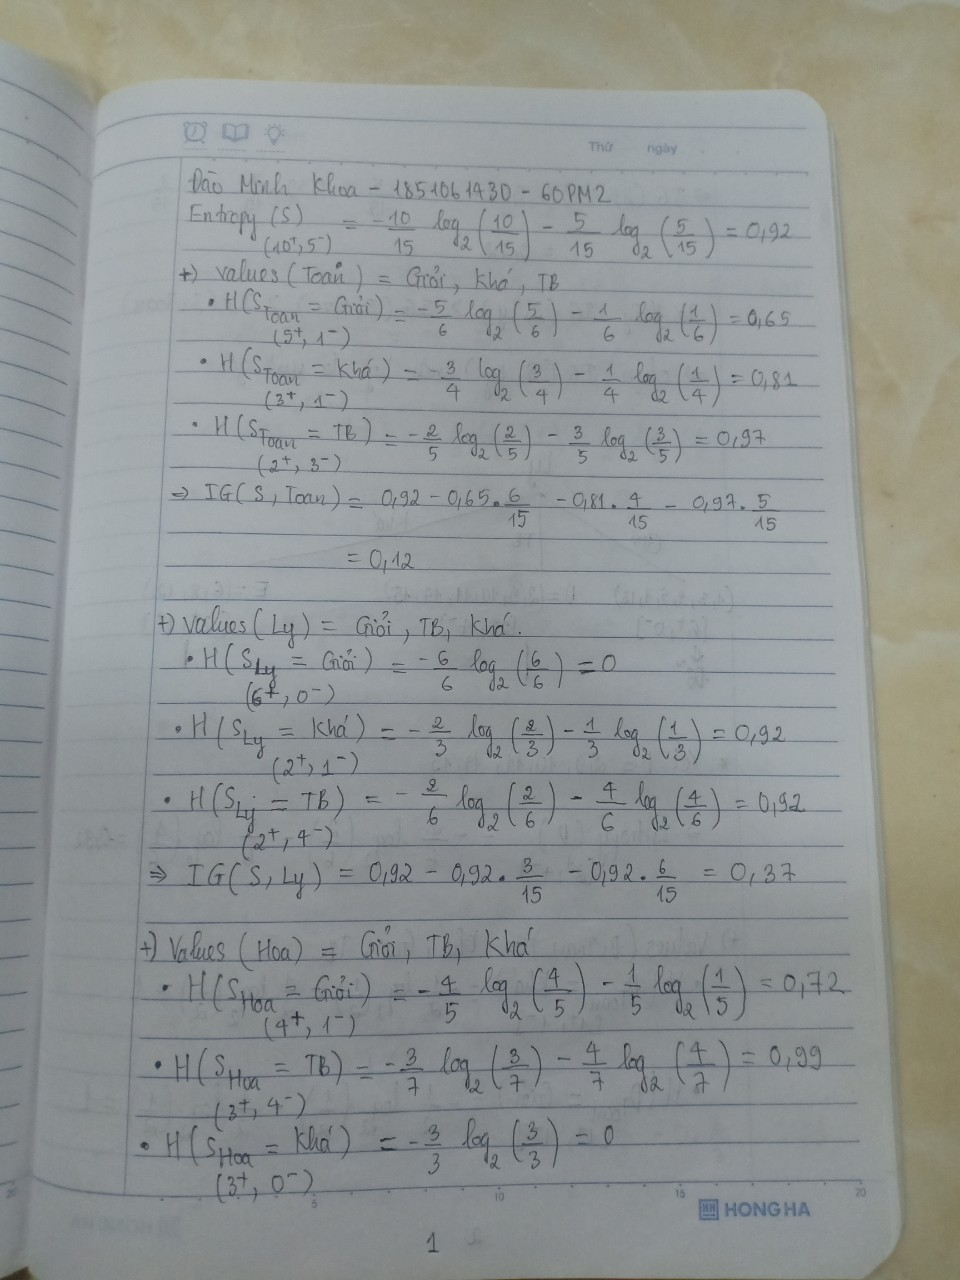 Thứ ngày
Đào Minh Khoa - 1851061430 - 60PM2
Entropy (S) = -10/15 log₂(10/15) - 5/15 log₂(5/15) = 0,92
(10⁺, 5⁻)
+) Values (Toan) = Giỏi, Khá, TB
• H(S_Toan = Giỏi) = -5/6 log₂(5/6) - 1/6 log₂(1/6) = 0,65
(5⁺, 1⁻)
• H(S_Toan = Khá) = -3/4 log₂(3/4) - 1/4 log₂(1/4) = 0,81
(3⁺, 1⁻)
• H(S_Toan = TB) = -2/5 log₂(2/5) - 3/5 log₂(3/5) = 0,97
(2⁺, 3⁻)
⇒ IG(S, Toan) = 0,92 - 0,65 . 6/15 - 0,81 . 4/15 - 0,97 . 5/15
= 0,12
+) Values (Ly) = Giỏi, TB, Khá.
• H(S_Ly = Giỏi) = -6/6 log₂(6/6) = 0
(6⁺, 0⁻)
• H(S_Ly = Khá) = -2/3 log₂(2/3) - 1/3 log₂(1/3) = 0,92
(2⁺, 1⁻)
• H(S_Ly = TB) = -2/6 log₂(2/6) - 4/6 log₂(4/6) = 0,92
(2⁺, 4⁻)
⇒ IG(S, Ly) = 0,92 - 0,92 . 3/15 - 0,92 . 6/15 = 0,37
+) Values (Hoa) = Giỏi, TB, Khá
• H(S_Hoa = Giỏi) = -4/5 log₂(4/5) - 1/5 log₂(1/5) = 0,72
(4⁺, 1⁻)
• H(S_Hoa = TB) = -3/7 log₂(3/7) - 4/7 log₂(4/7) = 0,99
(3⁺, 4⁻)
• H(S_Hoa = Khá) = -3/3 log₂(3/3) = 0
(3⁺, 0⁻)
5 10 15 20
HONG HA
1